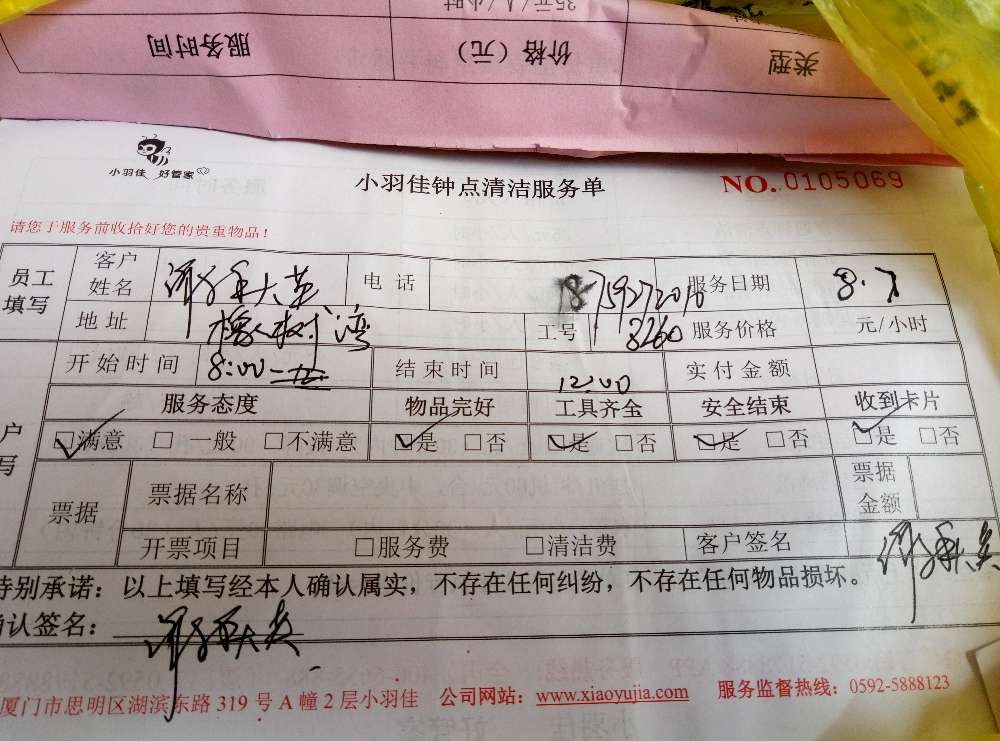 35元/人/小时
服务时间 价格（元） 类型
小羽佳 好管家
小羽佳钟点清洁服务单 NO. 0105069
请您于服务前收拾好您的贵重物品！
员工填写 客户姓名 电话 18759272010 服务日期 8.7
地址 橡树湾 工号 8260 服务价格 元/小时
开始时间 8:00 结束时间 12:00 实付金额
服务态度 物品完好 工具齐全 安全结束 收到卡片
户写 ☑满意 □一般 □不满意 ☑是 □否 ☑是 □否 ☑是 □否 ☑是 □否
票据 票据名称 票据金额
开票项目 □服务费 □清洁费 客户签名
特别承诺：以上填写经本人确认属实，不存在任何纠纷，不存在任何物品损坏。
确认签名：
厦门市思明区湖滨东路 319 号 A 幢 2 层小羽佳 公司网站：www.xiaoyujia.com 服务监督热线：0592-5888123